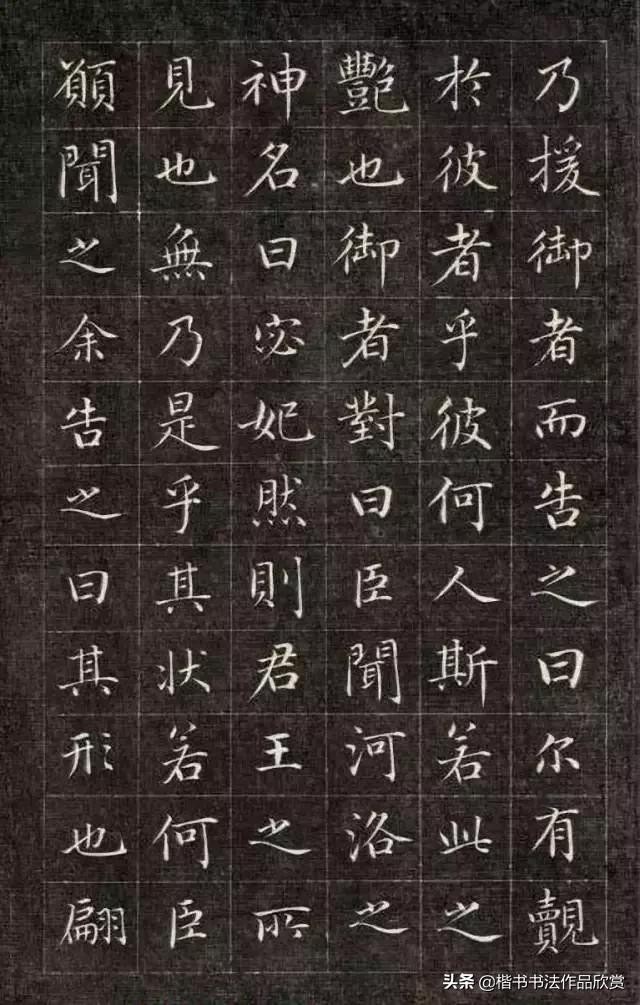 乃援御者而告之曰尔有覿
於彼者乎彼何人斯若此之
艷也御者對曰臣聞河洛之
神名曰宓妃然則君王之所
見也無乃是乎其状若何臣
願聞之余告之曰其形也翩
头条 @楷书书法作品欣赏